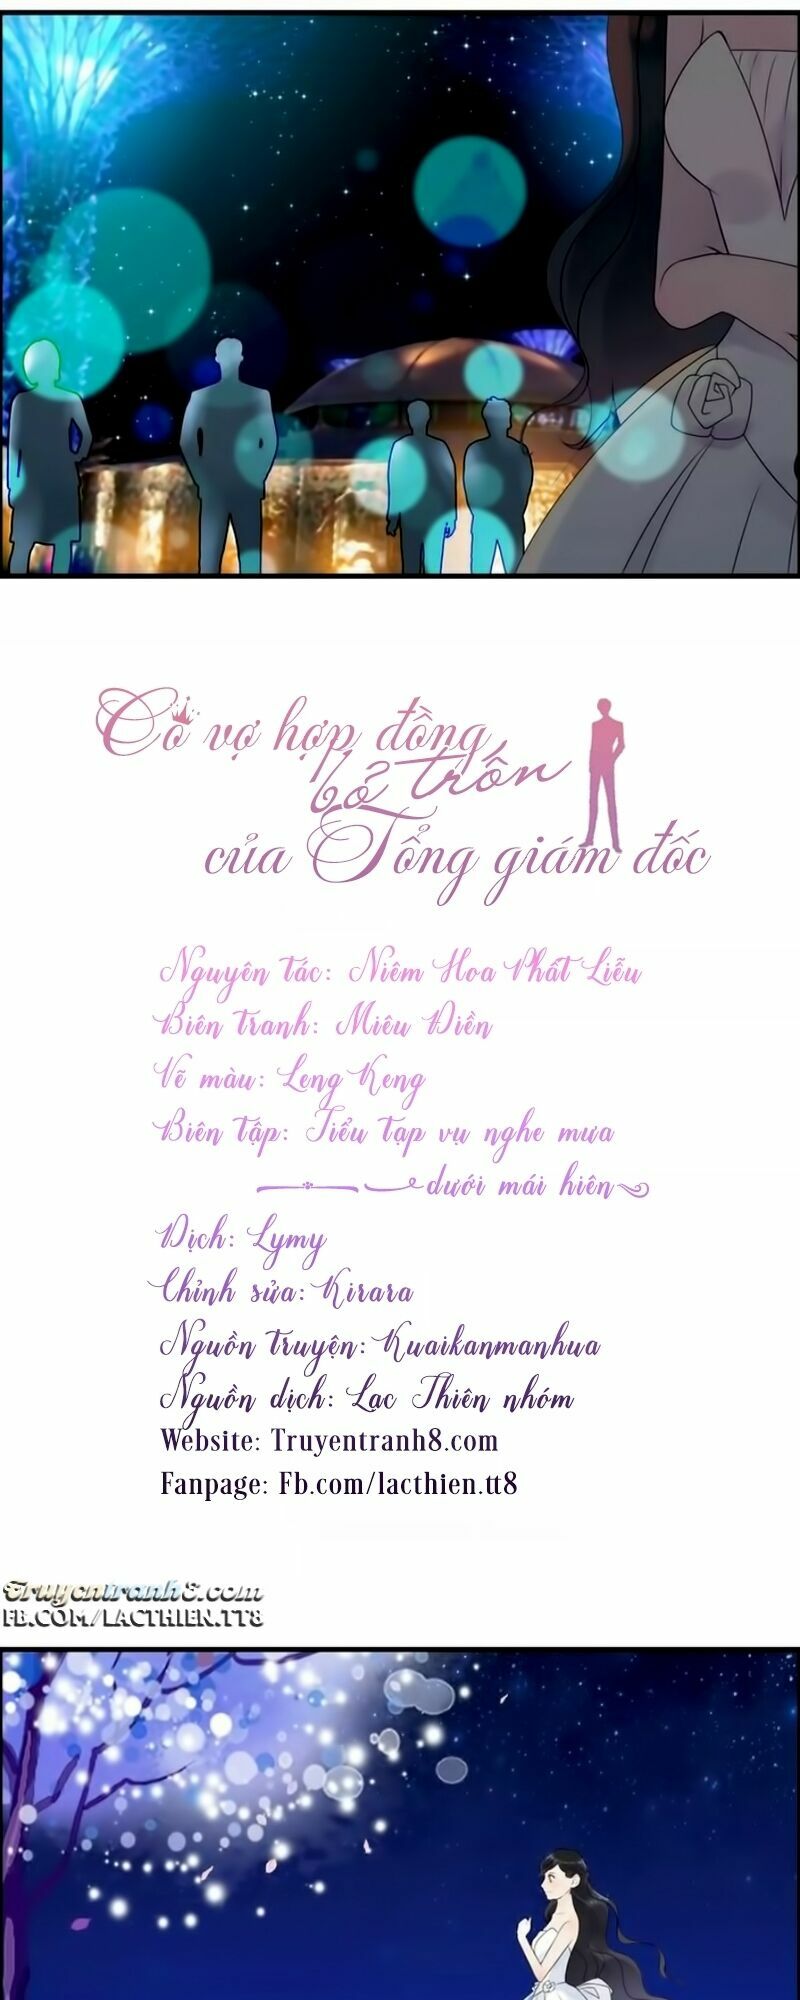 Cô vợ hợp đồng
bỏ trốn
của Tổng giám đốc
Nguyên tác: Niêm Hoa Phất Liễu
Biên tranh: Miêu Điền
Vẽ màu: Leng Keng
Biên tập: Tiểu tạp vụ nghe mưa
dưới mái hiên
Dịch: Lymy
Chỉnh sửa: Kirara
Nguồn truyện: Kuaikanmanhua
Nguồn dịch: Lạc Thiên nhóm
Website: Truyentranh8.com
Fanpage: Fb.com/lacthien.tt8
Truyentranh8.com
FB.COM/LACTHIEN.TT8